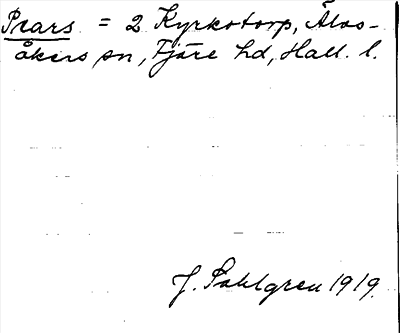 Pears = 2 Kyrkotorp, Älvs-
åkers sn, Fjäre hd, Hall. l.
J. Sahlgren 1919.